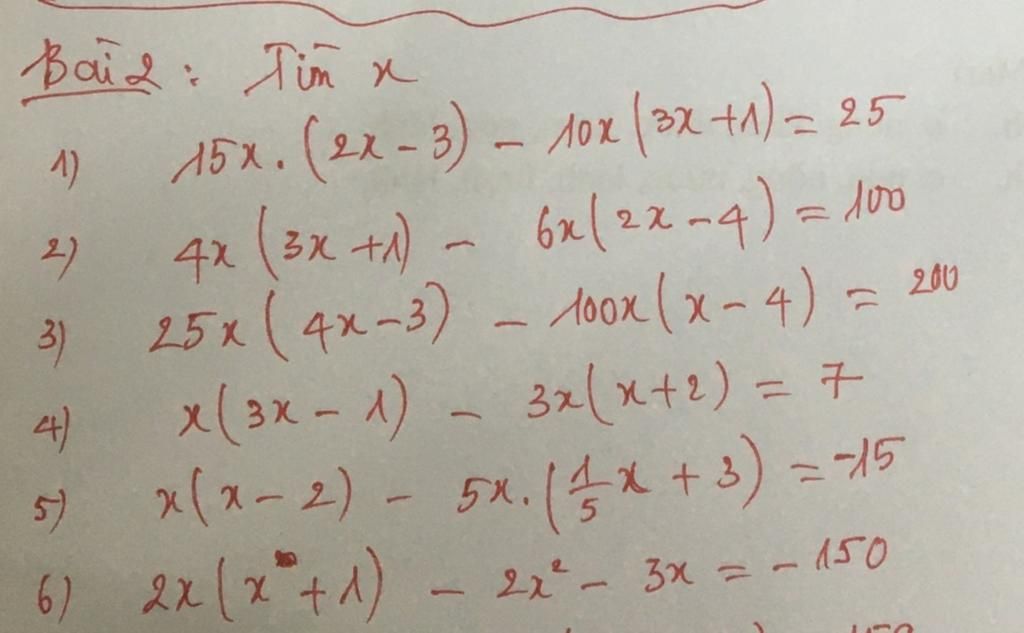 Bài 2 : Tìm x
1) 15x . (2x - 3) - 10x (3x + 1) = 25
2) 4x (3x + 1) - 6x (2x - 4) = 100
3) 25x (4x - 3) - 100x (x - 4) = 200
4) x (3x - 1) - 3x (x + 2) = 7
5) x (x - 2) - 5x . (1/5 x + 3) = -15
6) 2x (x + 1) - 2x² - 3x = - 150